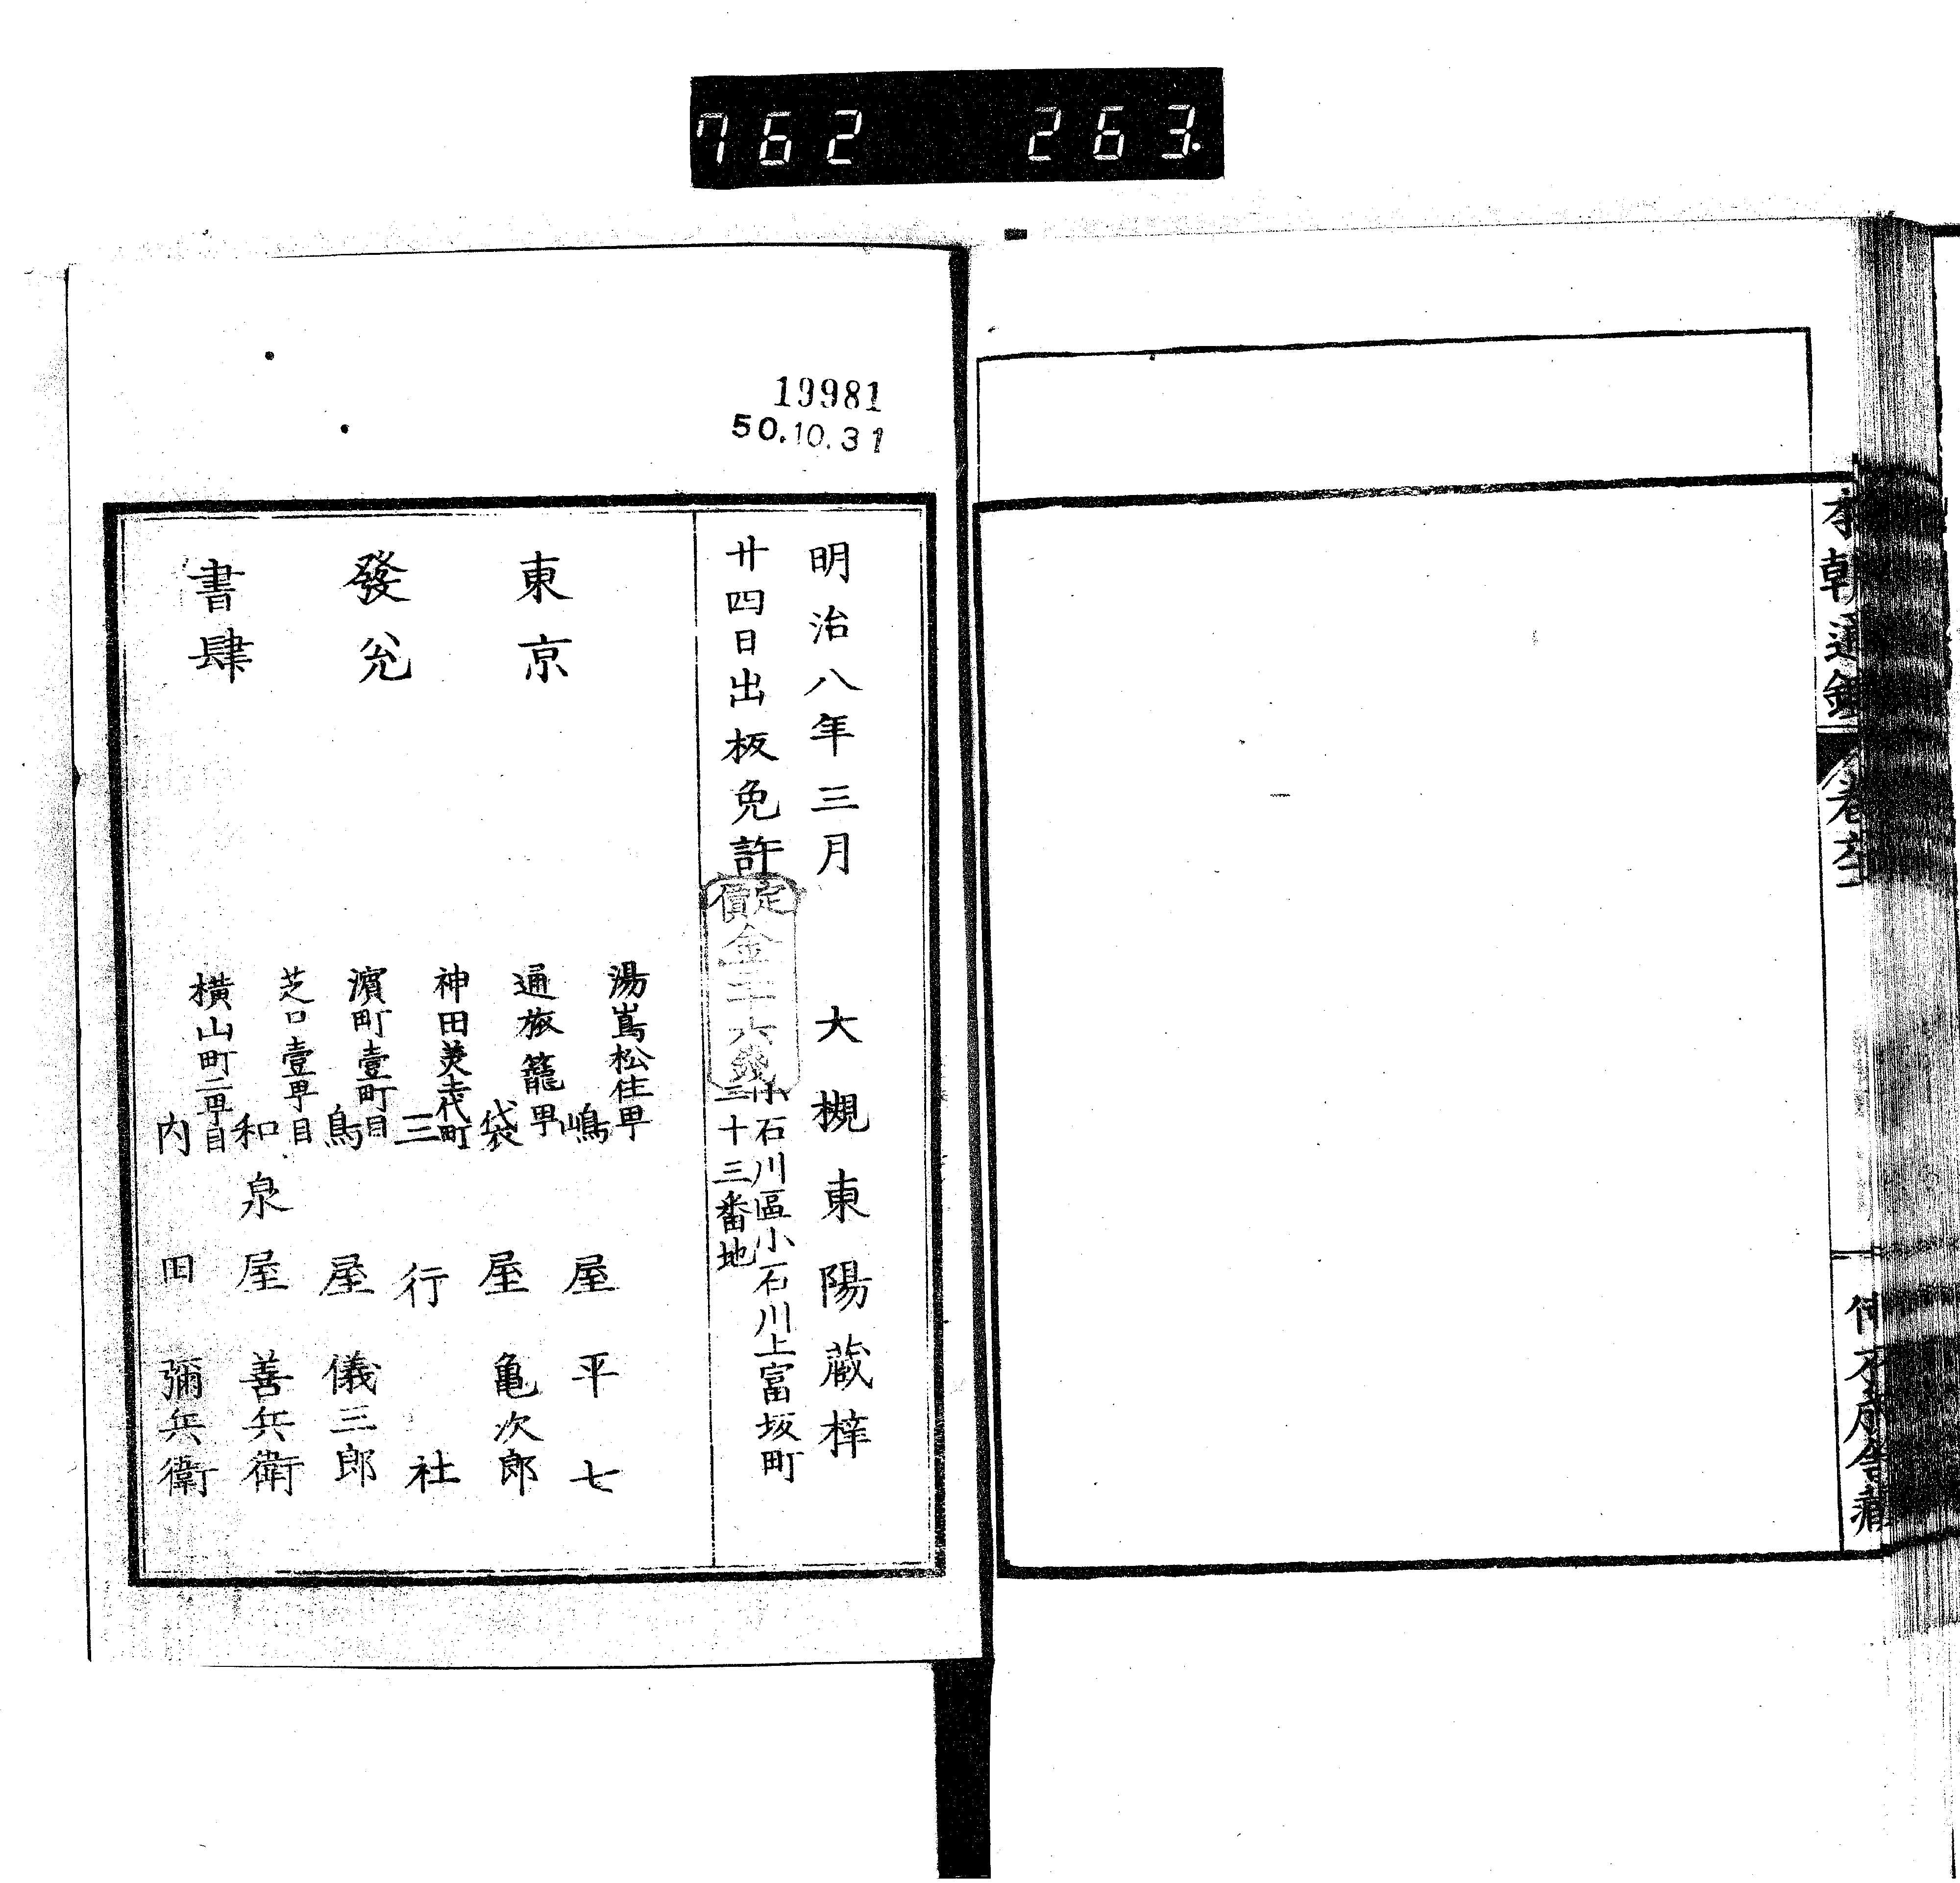 762 263
19981
50.10.31
本朝通鑑
明治八年三月
廿四日出板免許
定價金二十六錢
大槻東陽蔵梓
小石川區小石川上富坂町
三十三番地
東京
發兌
書肆
湯嶌松住町
嶋屋平七
通旅籠町
袋屋亀次郎
神田美土代町
三行社
濱町壹町目
鳥屋儀三郎
芝口壹町目
和泉屋善兵衛
横山町二町目
内田彌兵衛